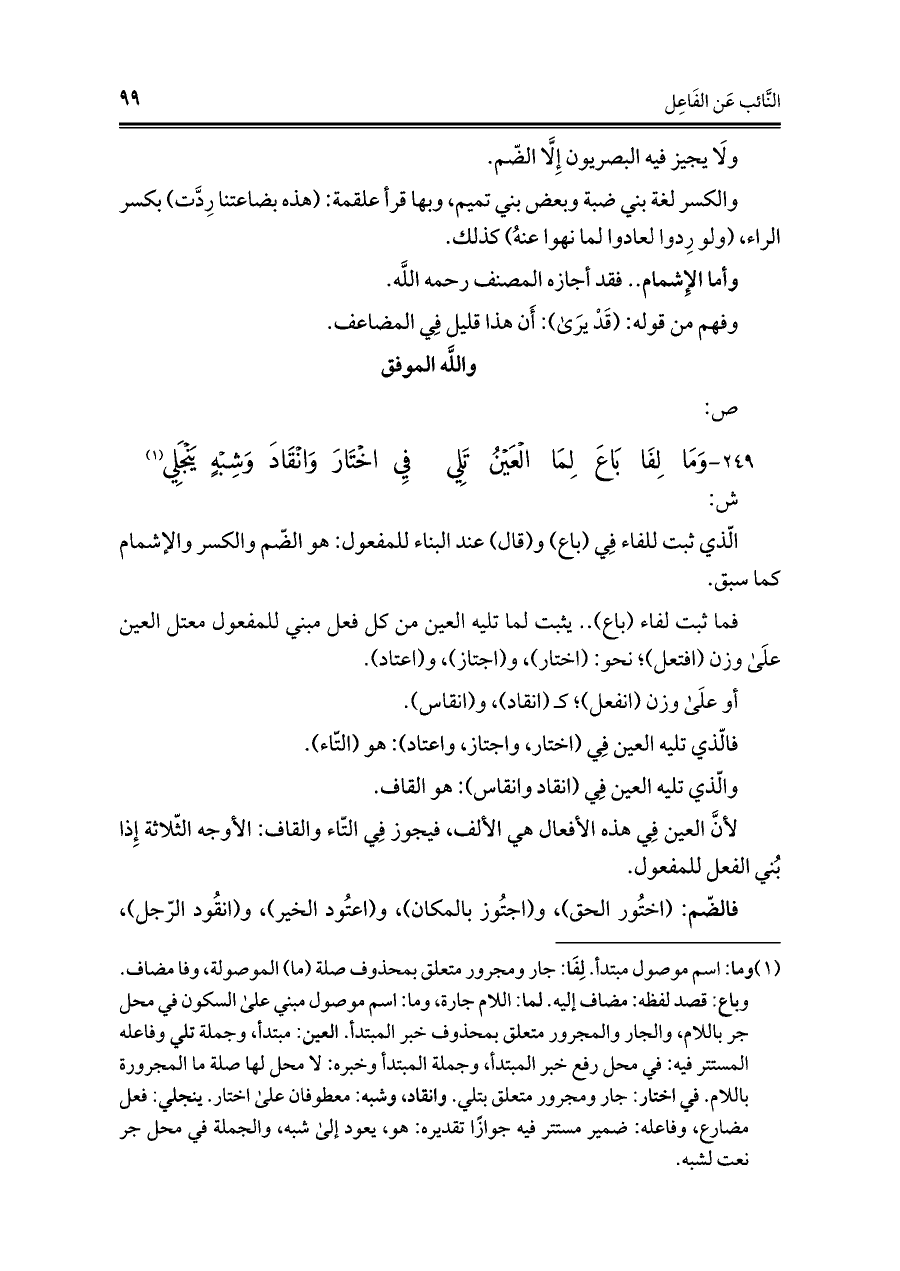 النَّائب عَن الفَاعِل ٩٩
ولَا يجيز فيه البصريون إِلَّا الضّم.
والكسر لغة بني ضبة وبعض بني تميم، وبها قرأ علقمة: (هذه بضاعتنا رِدَّت) بكسر
الراء، (ولو رِدوا لعادوا لما نهوا عنهُ) كذلك.
وأما الإِشمام.. فقد أجازه المصنف رحمه اللَّه.
وفهم من قوله: (قَدْ يرَىٰ): أَن هذا قليل فِي المضاعف.
واللَّه الموفق
ص:
٢٤٩-وَمَا لِفَا بَاعَ لِمَا الْعَيْنُ تَلِي فِي اخْتَارَ وَانْقَادَ وَشِبْهٍ يَنْجَلِي(١)
ش:
الّذي ثبت للفاء فِي (باع) و(قال) عند البناء للمفعول: هو الضّم والكسر والإشمام
كما سبق.
فما ثبت لفاء (باع).. يثبت لما تليه العين من كل فعل مبني للمفعول معتل العين
علَىٰ وزن (افتعل)؛ نحو: (اختار)، و(اجتاز)، و(اعتاد).
أو علَىٰ وزن (انفعل)؛ كـ (انقاد)، و(انقاس).
فالّذي تليه العين فِي (اختار، واجتاز، واعتاد): هو (التّاء).
والّذي تليه العين فِي (انقاد وانقاس): هو القاف.
لأنَّ العين فِي هذه الأفعال هي الألف، فيجوز فِي التّاء والقاف: الأوجه الثّلاثة إِذا
بُني الفعل للمفعول.
فالضّم: (اختُور الحق)، و(اجتُوز بالمكان)، و(اعتُود الخير)، و(انقُود الرّجل)،
(١)وما: اسم موصول مبتدأ. لِفَا: جار ومجرور متعلق بمحذوف صلة (ما) الموصولة، وفا مضاف.
وباع: قصد لفظه: مضاف إليه. لما: اللام جارة، وما: اسم موصول مبني علىٰ السكون في محل
جر باللام، والجار والمجرور متعلق بمحذوف خبر المبتدأ. العين: مبتدأ، وجملة تلي وفاعله
المستتر فيه: في محل رفع خبر المبتدأ، وجملة المبتدأ وخبره: لا محل لها صلة ما المجرورة
باللام. في اختار: جار ومجرور متعلق بتلي. وانقاد، وشبه: معطوفان علىٰ اختار. ينجلي: فعل
مضارع، وفاعله: ضمير مستتر فيه جوازًا تقديره: هو، يعود إلىٰ شبه، والجملة في محل جر
نعت لشبه.